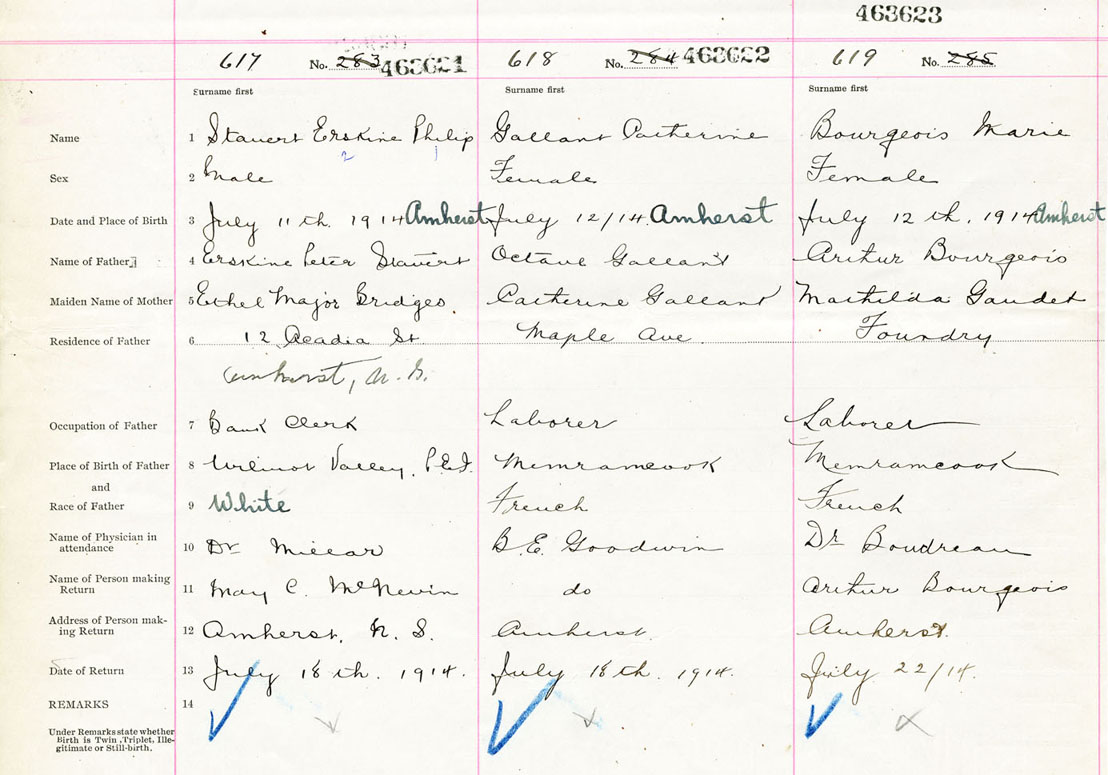 463623
617 No. 283 463621 618 No. 284 463622 619 No. 285
Surname first Surname first Surname first
Name 1 Stavert Erskine Philip Gallant Catherine Bourgeois Marie
2 1
Sex 2 Male Female Female
Date and Place of Birth 3 July 11th. 1914 Amherst July 12/14 Amherst July 12th. 1914 Amherst
Name of Father 4 Erskine Peter Stavert Octave Gallant Arthur Bourgeois
Maiden Name of Mother 5 Ethel Major Bridges. Catherine Gallant Mathilda Gaudet
Residence of Father 6 12 Acadia St. Maple Ave. Foundry
Amherst, N.S.
Occupation of Father 7 Bank Clerk Laborer Laborer
Place of Birth of Father 8 Wilmot Valley, P.E.I. Memramcook Memramcook
and
Race of Father 9 White French French
Name of Physician in
attendance 10 Dr Millar B.E. Goodwin Dr Boudreau
Name of Person making
Return 11 May C. McNevin do Arthur Bourgeois
Address of Person mak-
ing Return 12 Amherst, N.S. Amherst. Amherst.
Date of Return 13 July 18th. 1914. July 18th. 1914. July 22/14.
REMARKS 14
Under Remarks state whether
Birth is Twin, Triplet, Ille-
gitimate or Still-birth.